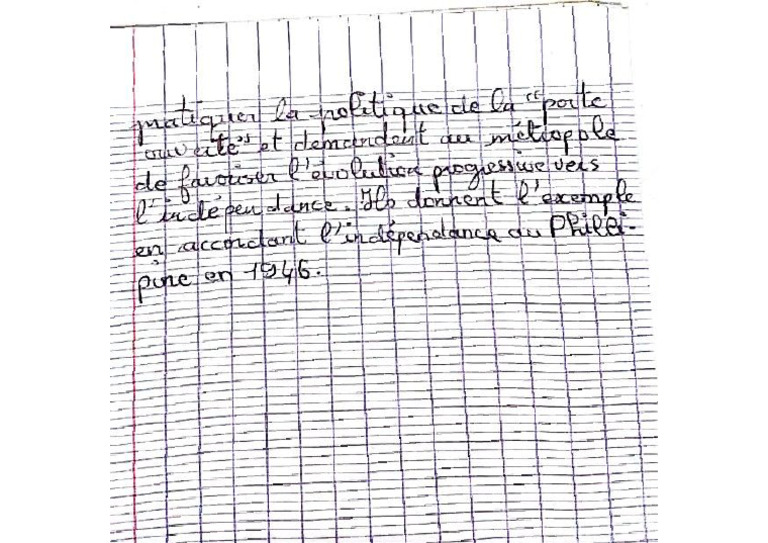 pratiquer la politique de la "porte
ouverte" et demandent au métropole
de favoriser l'évolution progressive vers
l'indépendance. Ils donnent l'exemple
en accordant l'indépendance au Philei-
pine en 1946.